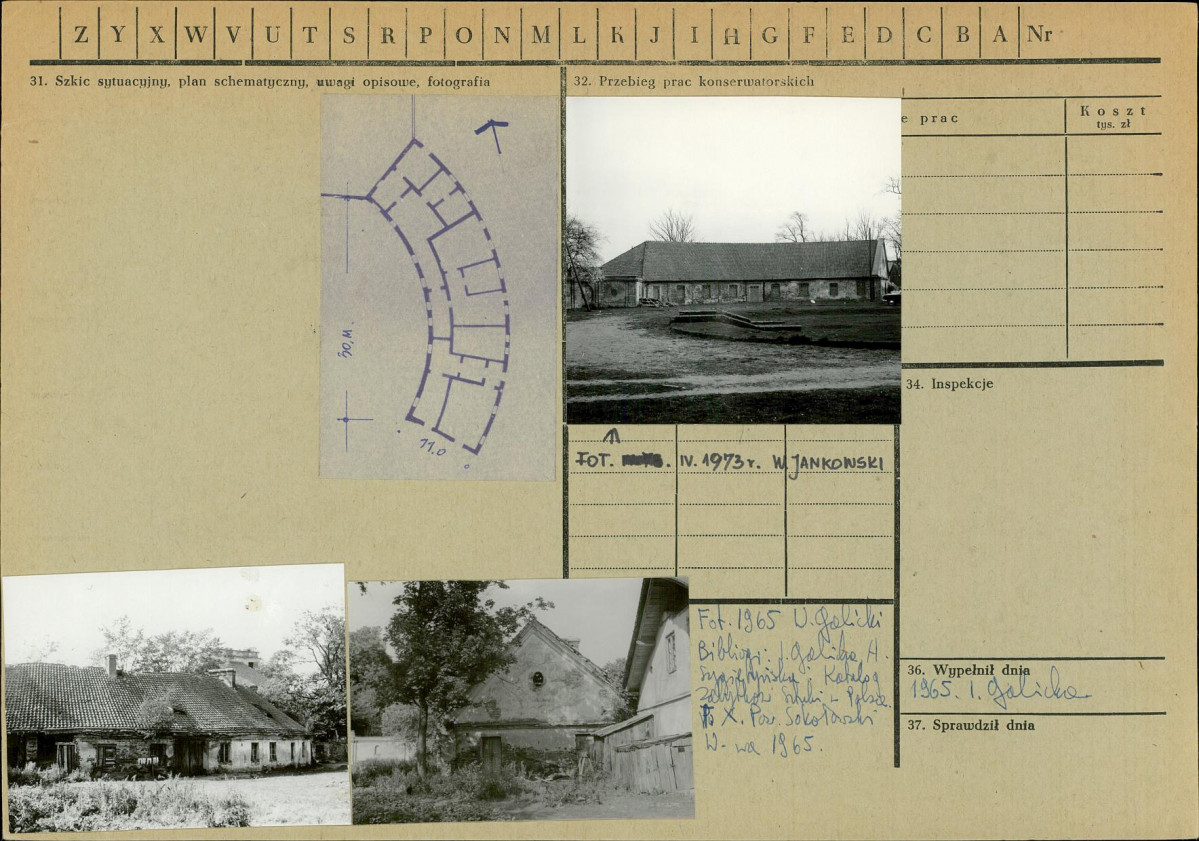 Z Y X W V U T S R P O N M L K J I H G F E D C B A Nr
31. Szkic sytuacyjny, plan schematyczny, uwagi opisowe, fotografia
11.0
32. Przebieg prac konserwatorskich
e prac
Koszt
tys. zł
FOT. IV. 1973 r. W. JANKOWSKI
34. Inspekcje
Fot. 1965 Galicki
I. Galicka, H.
Sygietyńska, Katalog
Zabytków Sztuki w Polsce.
X. Pow. Sokołowski
W-wa 1965.
36. Wypełnił dnia
1965. I. Galicka
37. Sprawdził dnia